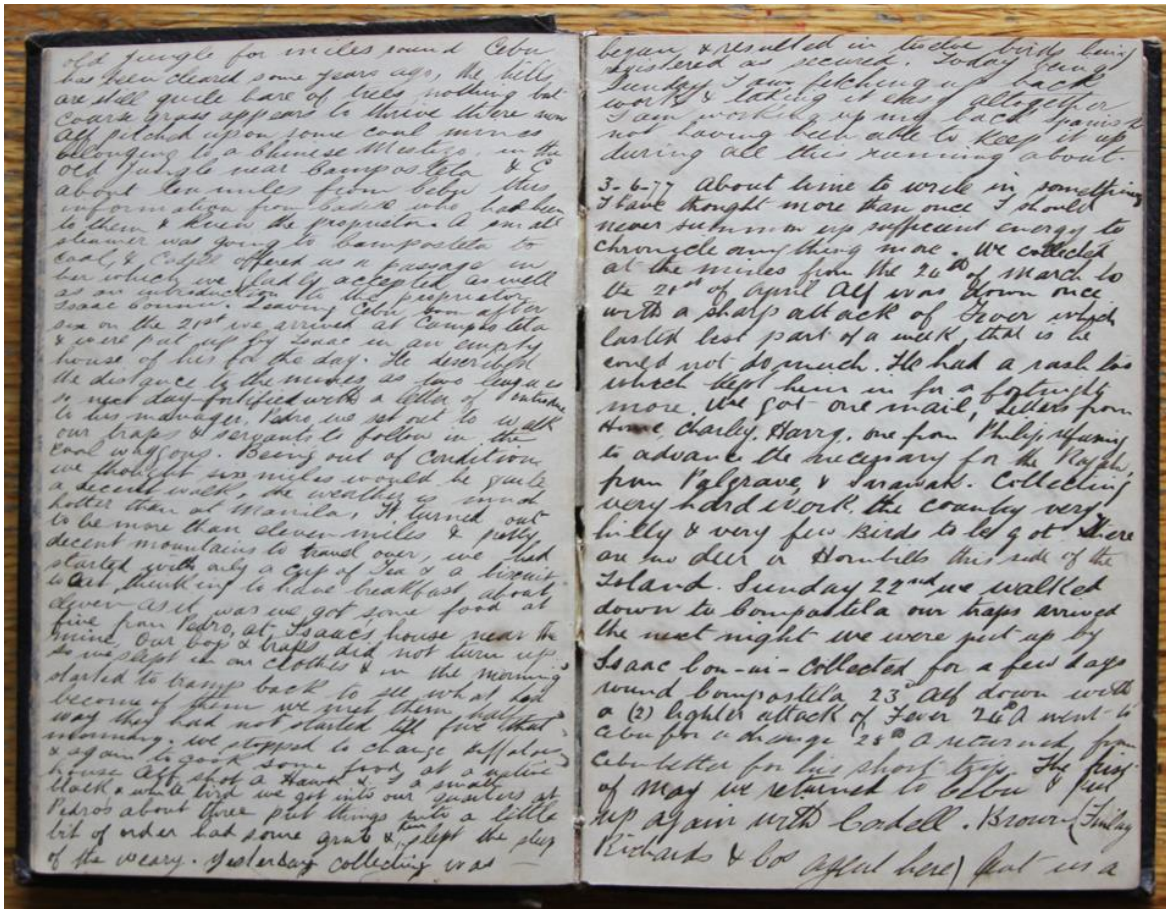 old jungle for miles round Cebu
has been cleared some years ago, the hills
are still quite bare of trees, nothing but
coarse grass appears to thrive there now
Alf pitched upon some coal mines
belonging to a Chinese Mestizo, in the
old jungle near Compostela &
about ten miles from Cebu this
information from who had been
to them & knew the proprietor. A small
steamer was going to Compostela to
coal, & offered us a passage in
her which we gladly accepted as well
as an introduction to the proprietor
Isaac Leaving Cebu soon after
six on the 21st we arrived at Compostela
& were put up by Isaac in an empty
house of his for the day. He described
the distance to the mines as two leagues
so next day fortified with a letter of
to his manager, Pedro, we set out to walk
our traps & servants to follow in the
coal waggons. Being out of condition
we thought six miles would be quite
a decent walk, the weather is much
hotter than at Manila, It turned out
to be more than eleven miles & pretty
decent mountains to travel over, we had
started with only a cup of Tea & a biscuit
to eat thinking to have breakfast about
eleven as it was we got some food at
five from Pedro, at Isaacs house near the
mine, our boys & traps did not turn up
so we slept in our clothes & in the morning
started to tramp back to see what had
become of them we met them half
way they had not started till five that
morning, we stopped to change
& again to cook some food at a native
house Alf shot a Hawk & I a small
black & white bird we got into our quarters at
Pedros about three put things into a little
bit of order had some grub & then slept the sleep
of the weary. Yesterday collecting was
began, & resulted in twelve birds being
registered as secured. Today being
Sunday I am fetching up back
work & taking it easy altogether
I am working up my back Spanish
not having been able to keep it up
during all this running about.
3-6-77 About time to write in something
I have thought more than once I should
never summon up sufficient energy to
chronicle anything more. We collected
at the mines from the 24th of March to
the 21st of April Alf was down once
with a sharp attack of Fever which
lasted best part of a week, that is he
could not do much. He had a rash too
which kept him in for a fortnight
more. We got one mail, Letters from
Home, Charley, Harry, one from Philip refusing
to advance the necessary for the Rajah,
from Palgrave, & Sarawak. Collecting
very hard work, the country very
hilly & very few Birds to be got There
are no deer or Hornbills this side of the
Island. Sunday 22nd we walked
down to Compostela our traps arrived
the next night we were put up by
Isaac Collected for a few days
round Compostela 23d Alf down with
a (2) lighter attack of Fever A went to
Cebu for a change 28th A returned from
Cebu better for his short trip. The first
of May we returned to Cebu & put
up again with Cadell. Brown (Findlay
Richards & Cos agent here) put us a